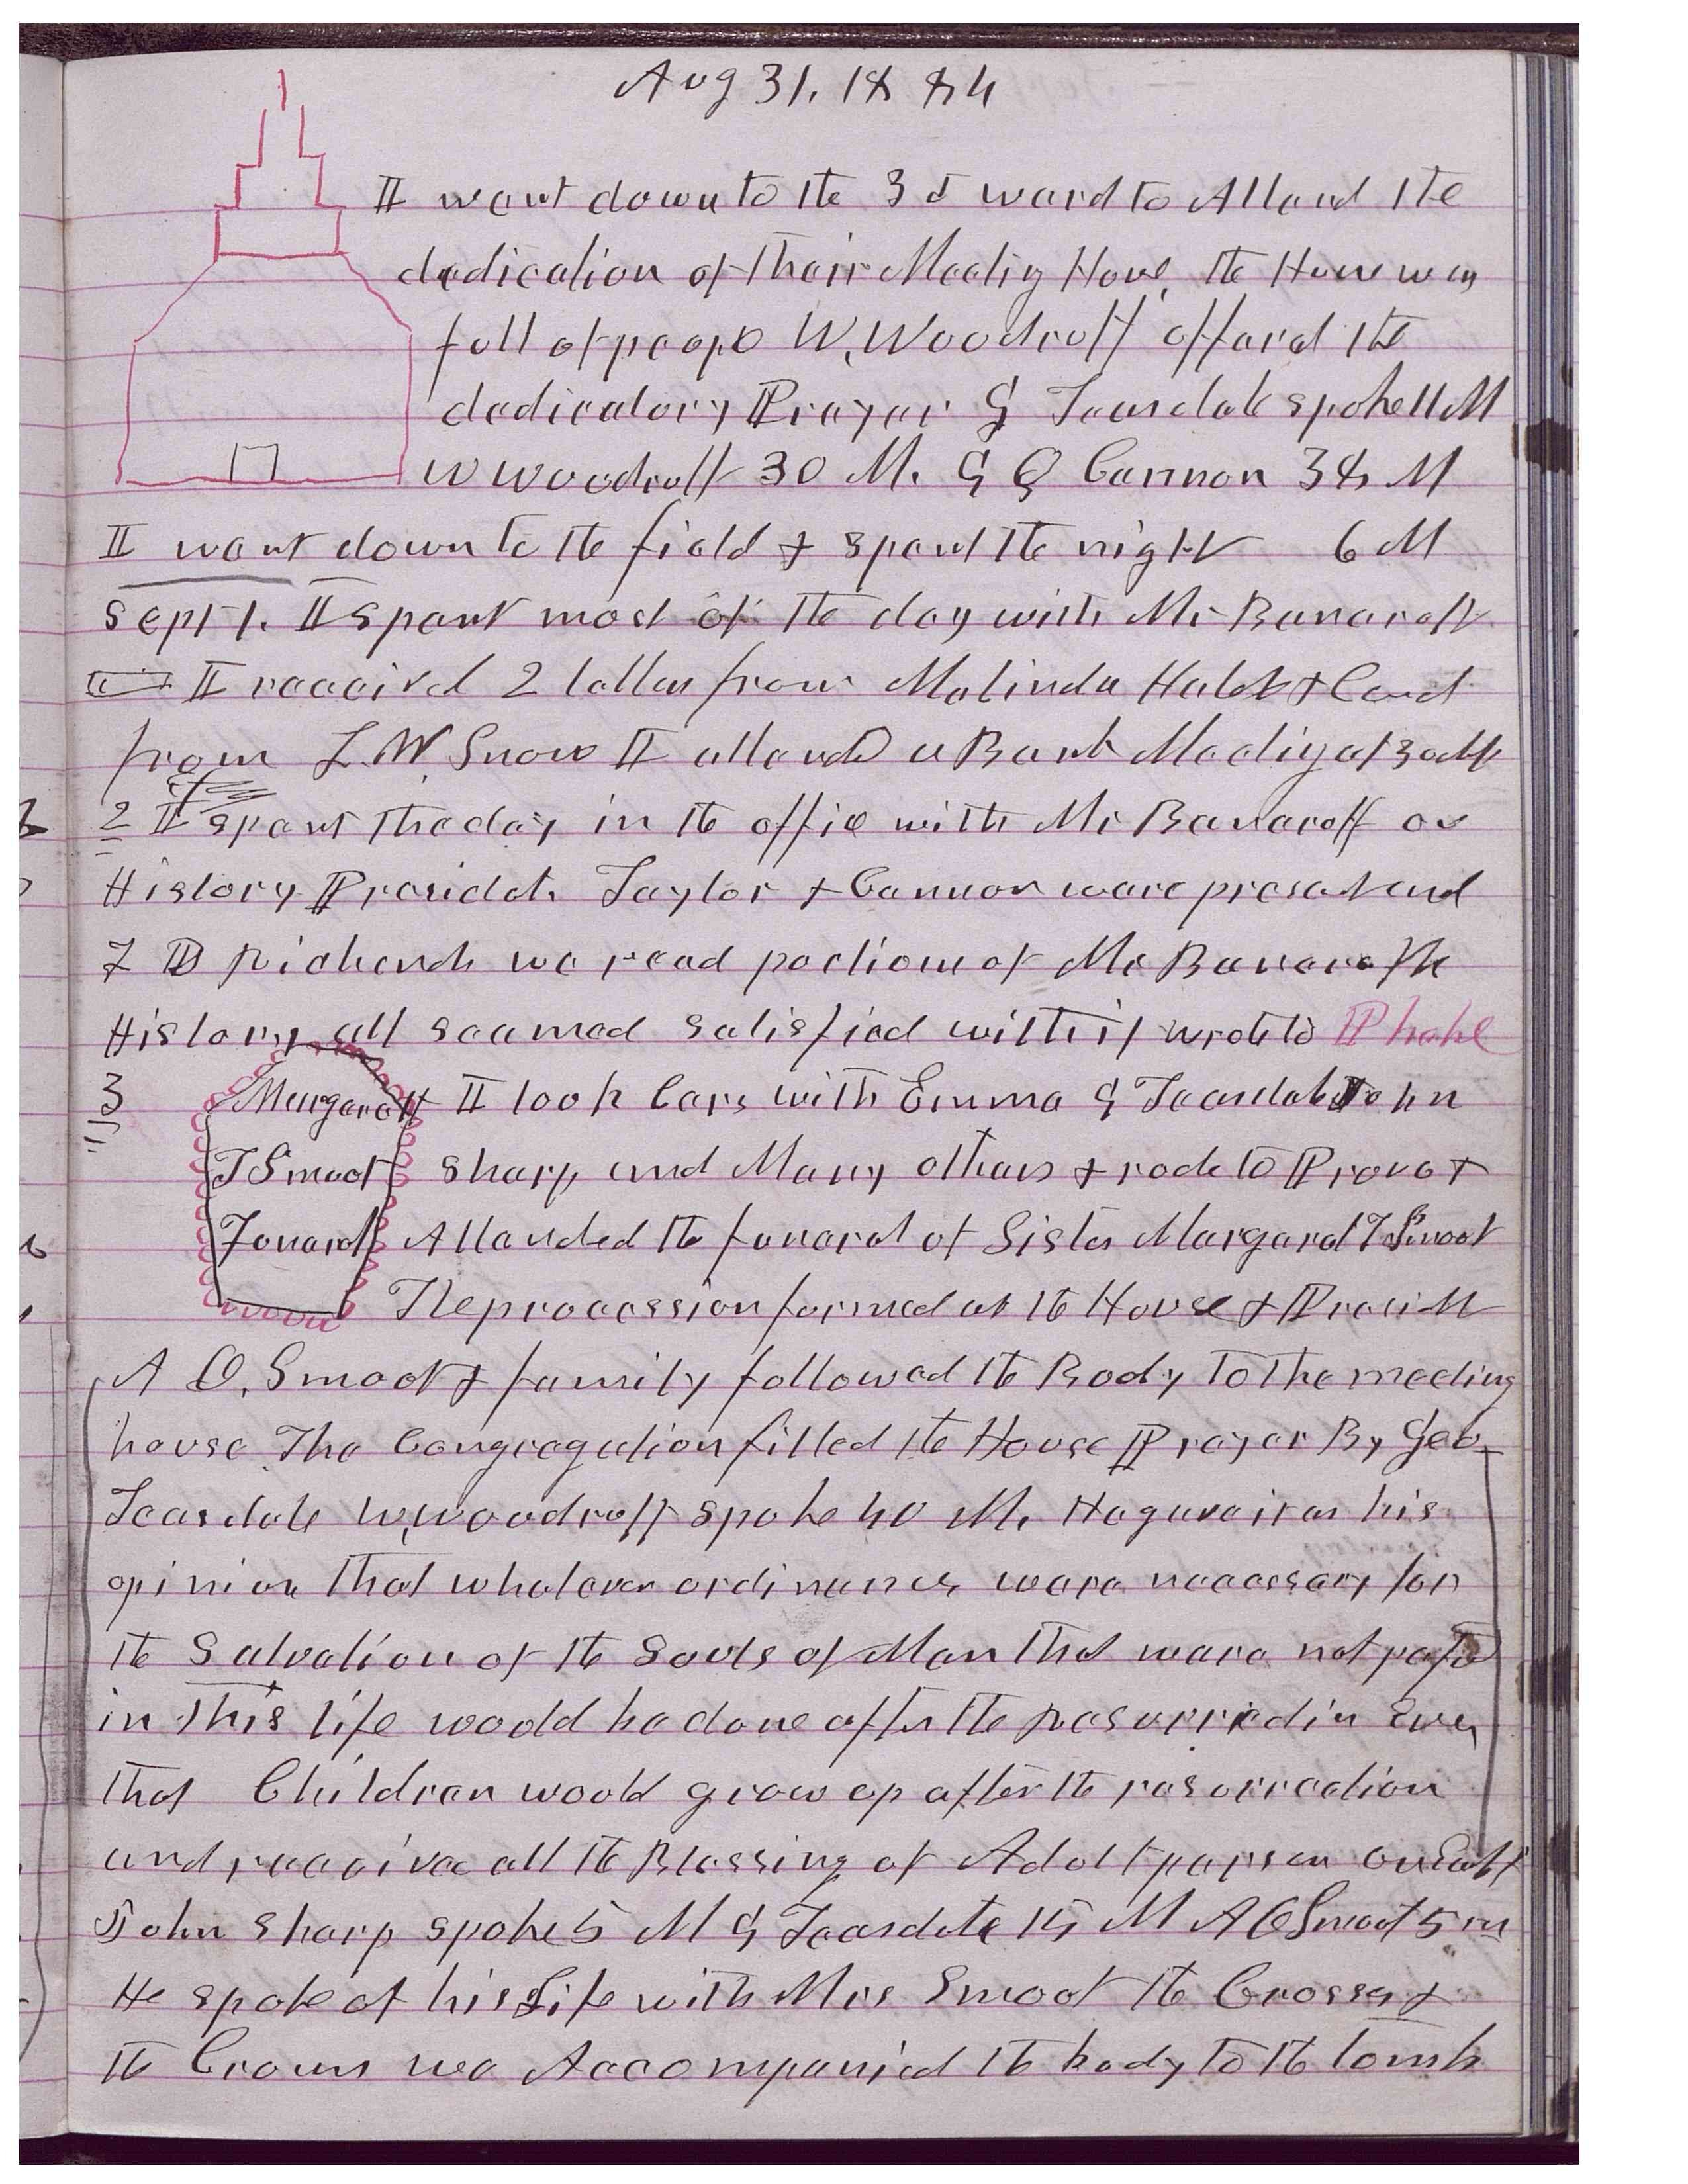 Aug 31, 1884
I went down to the 3d ward to Attend the
dedication of their Meeting House, the House was
full of people W, Woodruff offered the
dedicatory Prayer G Teasdale spoke 11 M
W Woodruff 30 M. G Q Cannon 38 M
I went down to the field & spent the night 6 M
Sept 1. I spent most of the day with Mr Bancroft
I received 2 letters from Malinda Hatch & Card
from L. W. Snow I attend a Bank Meeting at 3 oclk
2 I spent the day in the office with Mr Bancroft on
History Presidets Taylor & Cannon were present and
F D Richards we read portions of Mr Bancrofts
History all seemed satisfied with it wrote to Phebe
3 Margarett I took Cars with Emma G Teasdale John
T Smoot Sharp and Many others & rode to Provo &
Funeral Attended the funeral of Sister Margaret T Smoot
The procession formed at the House &
A O. Smoot & family followed the Body to the meeting
house The Congregation filled the House Prayer By Geo
Teasdale W, Woodruff spoke 40 M. He gave it as his
opinion that whatever ordinances were necessary for
the Salvation of the Souls of Men that were not
in this life would be done after the resurrection
that Children would grow up after the resurrection
and receive all the Blessing of Adolt person on Earth
John Sharp spoke 5 M G Teasdale 15 M A O Smoot 5 m
He spoke of his Life with Mrs Smoot the Crosses &
the Crowns we Accompanied the body to the tomb